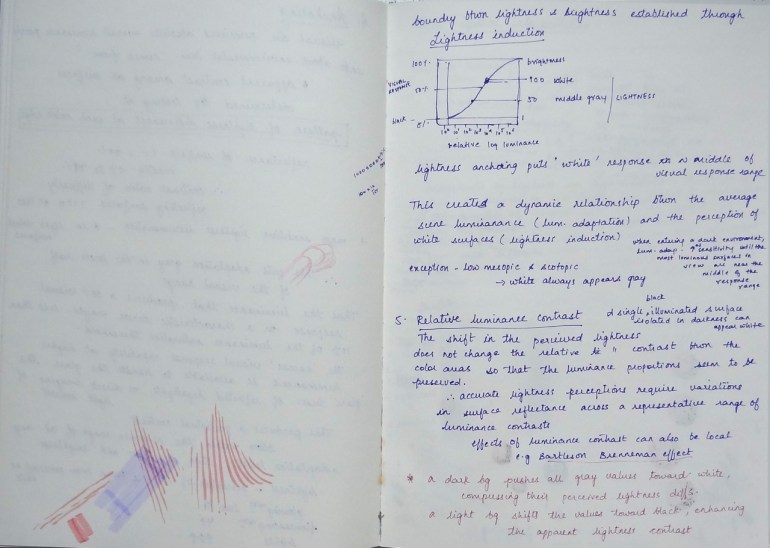 boundry btwn lightness & brightness established through
Lightness induction
100%
brightness
VISUAL RESPONSE
100 white
50%
50 middle gray
LIGHTNESS
black
0%
1
Relative log luminance
lightness anchoring puts 'white' response in ~ middle of
visual response range
This created a dynamic relationship btwn the average
scene luminanance (lum. adaptation) and the perception of
white surfaces (lightness induction)
when entering a dark environment,
lum. adap. ↑es sensitivity until the
most luminous surfaces in
view are near the
middle of the
response
range
exception - low mesopic & scotopic
→ white always appears gray
5. Relative luminance contrast
black
a single, illuminated surface
isolated in darkness can
appear white
The shift in the perceived lightness
does not change the relative " contrast btwn the
color areas so that the luminance proportions seem to be
preserved.
∴ accurate lightness perceptions require variations
in surface reflectance across a representative range of
luminance contrasts
effects of luminance contrast can also be local
e.g Bartleson Brenneman effect
* a dark bg pushes all gray values toward white,
compressing their perceived lightness diffs.
a light bg shifts the values toward black, enhancing
the apparent lightness contrast